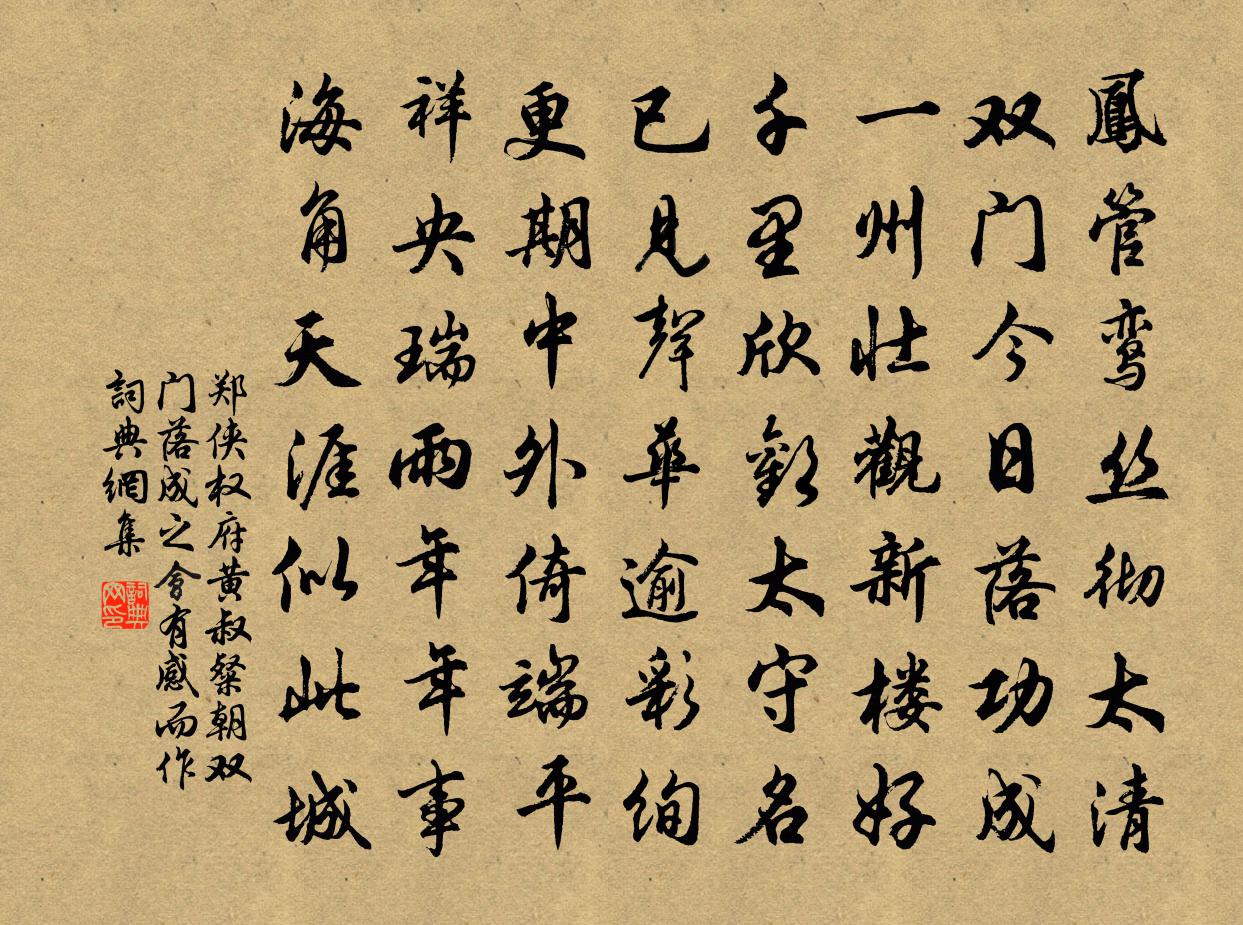 鳳管鸾丝彻太清
双门今日落功成
一州壮觀新楼好
千里欣歡太守名
已見聲華逾彩绚
更期中外倚端平
祥央瑞雨年年事
海角天涯似此城
郑侠权府黄叔粲朝双
门落成之會有感而作
詞典網集
詞典网印